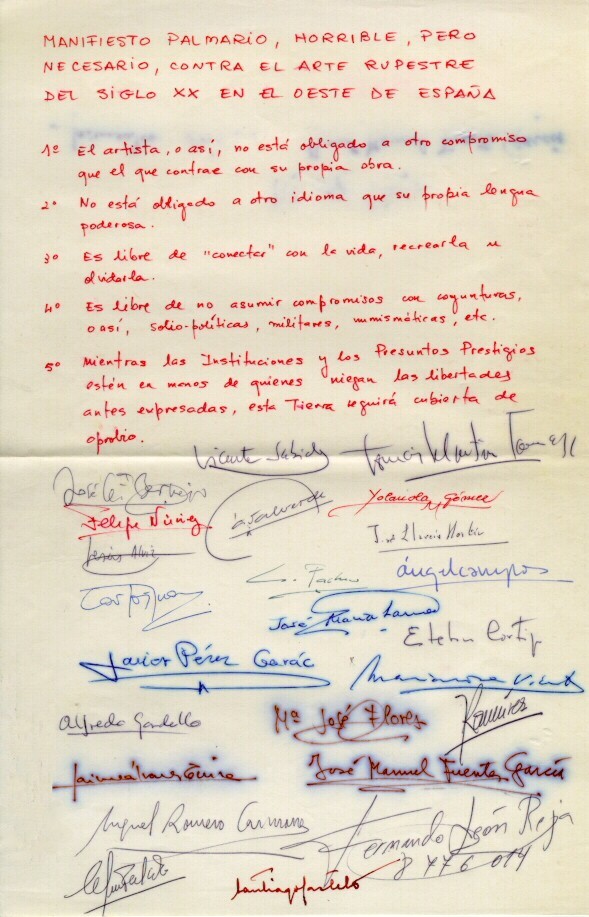 MANIFIESTO PALMARIO, HORRIBLE, PERO
NECESARIO, CONTRA EL ARTE RUPESTRE
DEL SIGLO XX EN EL OESTE DE ESPAÑA
1º El artista, o así, no está obligado a otro compromiso
que el que contrae con su propia obra.
2º No está obligado a otro idioma que su propia lengua
poderosa.
3º Es libre de "conectar" con la vida, recrearla u
olvidarla.
4º Es libre de no asumir compromisos con coyunturas,
o así, solio-políticas, militares, numismáticas, etc.
5º Mientras las Instituciones y los Presuntos Prestigios
estén en manos de quienes niegan las libertades
antes expresadas, esta Tierra seguirá cubierta de
oprobio.
Vicente Sabido Tomás Martín
José
Felipe Núñez Yolanda Gómez
Jesús
ángel campos
José María
Esteban Cortijo
Javier Pérez
Alfredo Mª José Flores Ramírez
José Manuel Fuentes García
Miguel Romero Carmona
Fernando León Reja
8776014